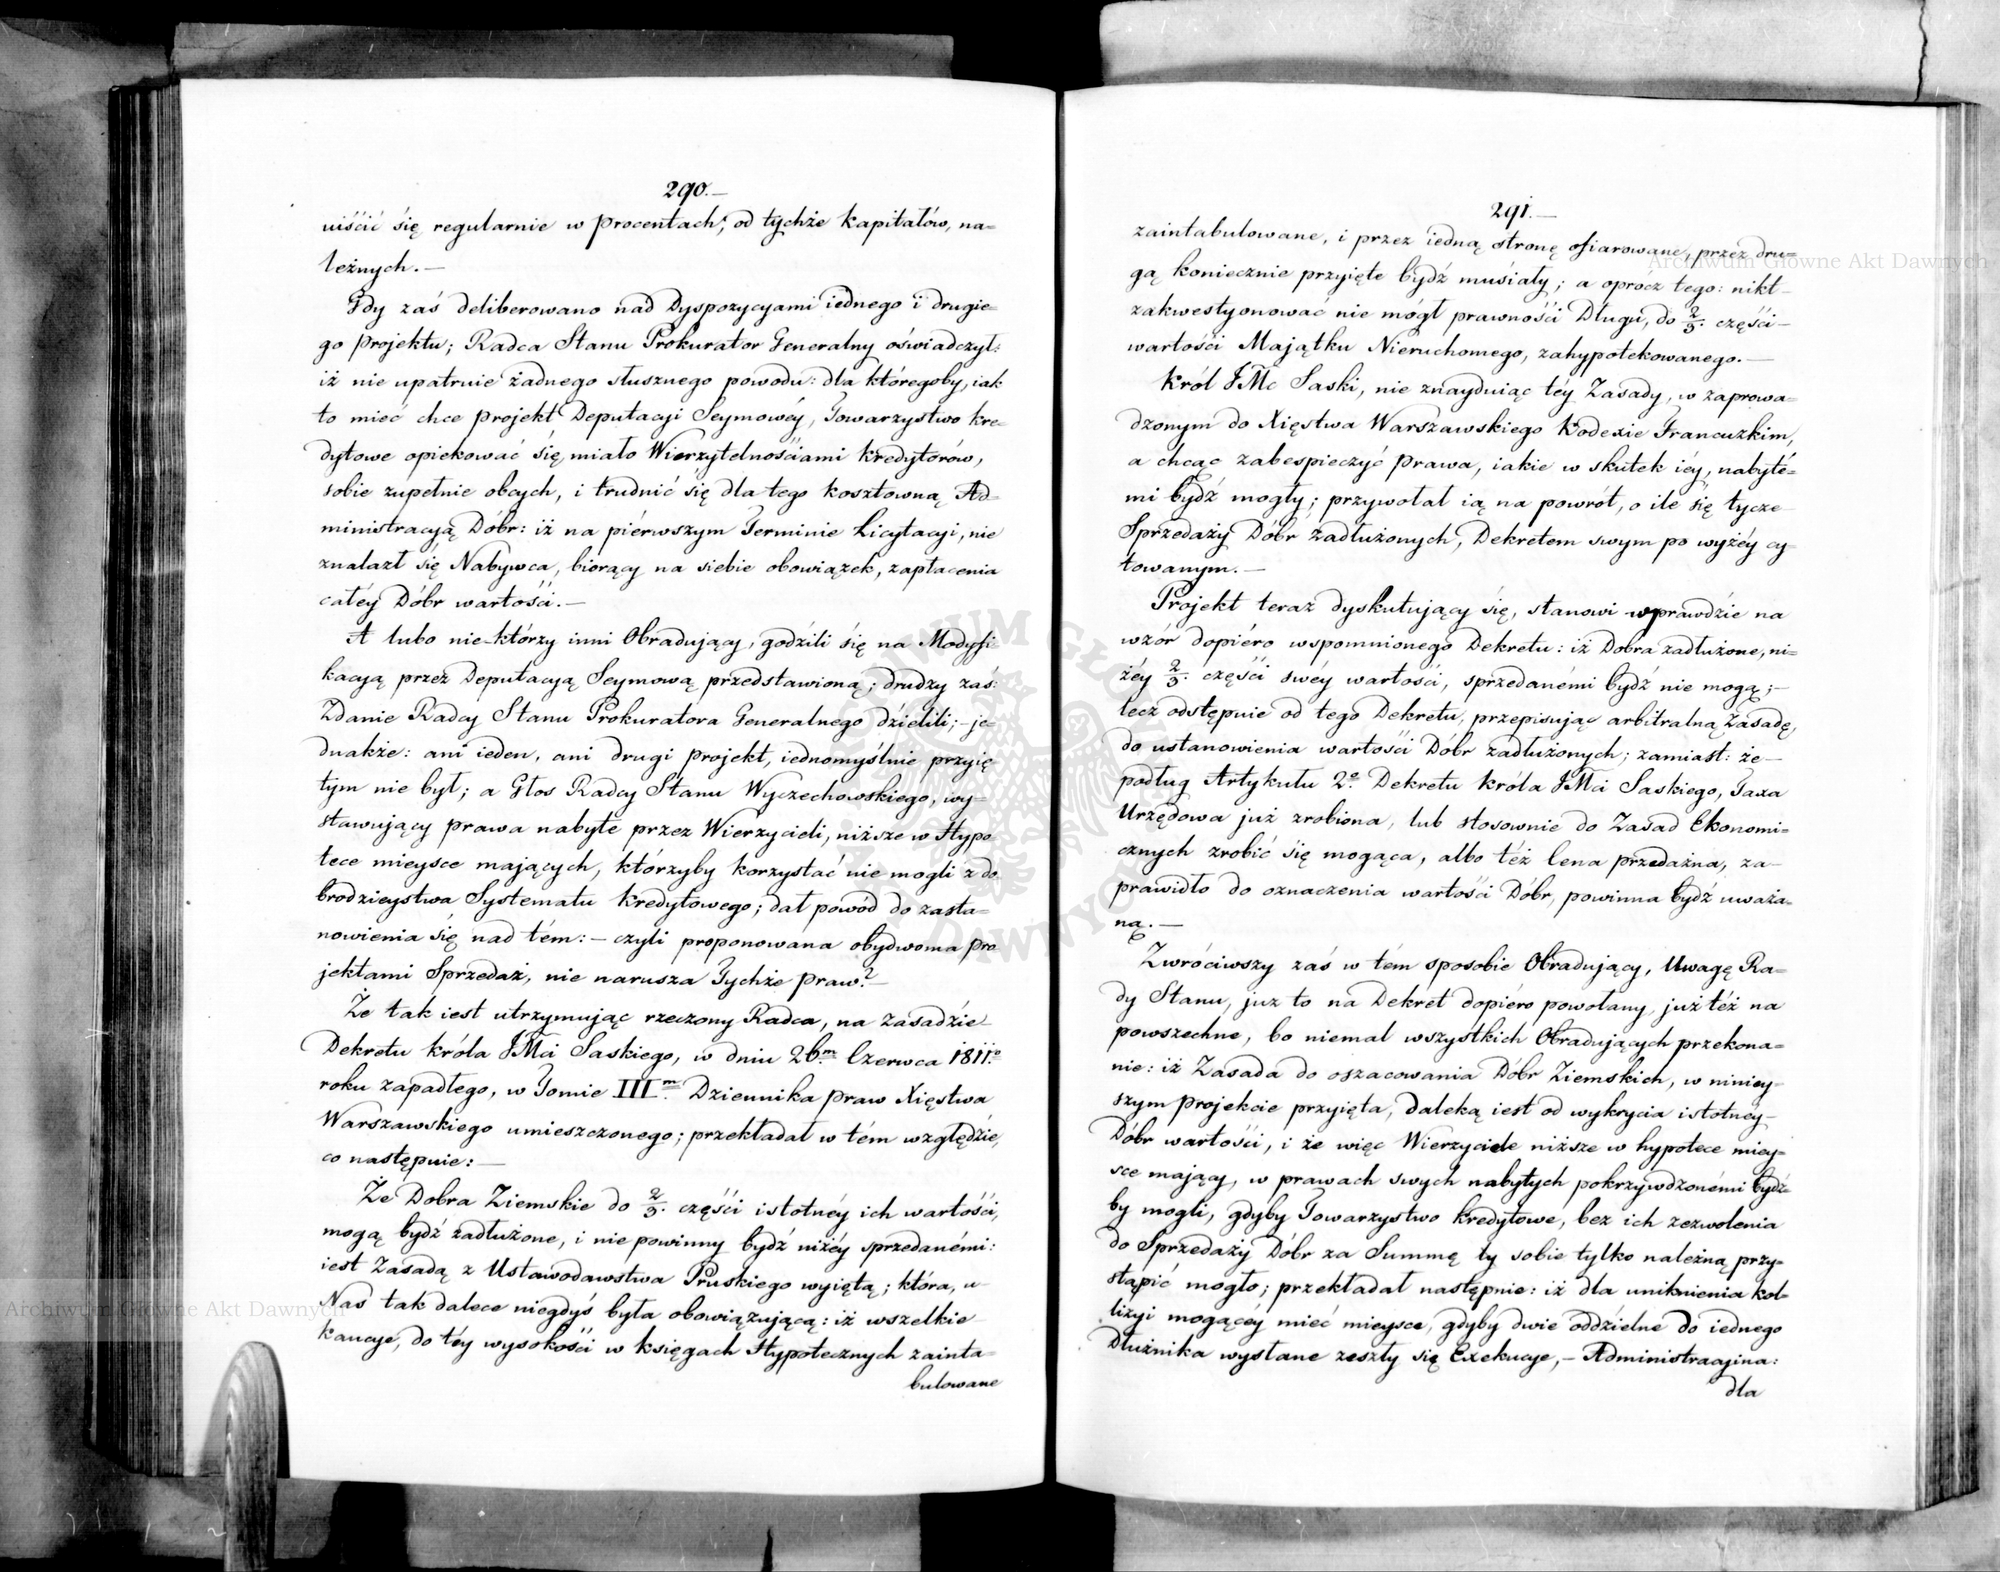 290.—
uiścić się regularnie w Procentach, od tychże Kapitałów, na=
leżnych.—
Gdy zaś deliberowano nad Dyspozycyami iednego i drugie=
go Projektu; Radca Stanu Prokurator Generalny oświadczył:
iż nie upatruie żadnego słusznego powodu: dla któregoby, iak
to mieć chce projekt Deputacyi Seymowéy, Towarzystwo kre=
dytowe opiekować się miało Wierzytelnościami Kredytorów,
sobie zupełnie obcych, i trudnić się dla tego kosztowną Ad=
ministracyą Dóbr: iż na piérwszym Terminie Licytacyi, nie
znalazł się Nabywca, biorący na siebie obowiązek, zapłacenia
całéy Dóbr wartości.—
A lubo nie-którzy inni Obradujący, godzili się na Modyfi=
kacyą przez Deputacyą Seymową przedstawioną; drudzy zaś:
Zdanie Radcy Stanu Prokuratora Generalnego dzielili;- je=
dnakże: ani ieden, ani drugi projekt, iednomyślnie przyię=
tym nie był; a Głos Radcy Stanu Wyczechowskiego, wy=
stawujący prawa nabyte przez Wierzycieli, niższe w Hypo=
tece mieysce mających, którzyby korzystać nie mogli z do=
brodzieystwa Systematu Kredytowego; dał powód do zasta=
nowienia się nad tém:— czyli proponowana obydwoma pro=
jektami Sprzedaż, nie narusza Tychże Praw?—
Że tak iest utrzymując rzeczony Radca, na zasadzie—
Dekretu Króla JMci Saskiego, w dniu 26m. Czerwca 1811.o
roku zapadłego, w Tomie IIIm. Dziennika Praw Xięstwa
Warszawskiego umieszczonego; przekładał w tém względzie,
co następuie:—
Że Dobra Ziemskie do 2/3. części istotnéy ich wartości,
mogą bydź zadłużone, i nie powinny bydź niżéy sprzedanémi:
iest Zasadą z Ustawodawstwa Pruskiego wyiętą; która, u—
Nas tak dalece niegdyś była obowiązującą: iż wszelkie—
Kaucye, do téy wysokości w księgach Hypotecznych zainta=
bulowane
291.—
zaintabulowane, i przez iedną stronę ofiarowane, przez dru=
gą koniecznie przyięte bydź musiały; a oprocz tego: nikt—
zakwestyonować nie mógł prawności Długu, do 2/3. części—
wartości Majątku Nieruchomego, zahypotekowanego.—
Król JMc Saski, nie znayduiąc téy Zasady, w zaprowa=
dzonym do Xięstwa Warszawskiego Kodexie Francuzkim,
a chcąc zabespieczyć Prawa, iakie w skutek iéy, nabyté=
mi bydź mogły; przywołał ią na powrót, o ile się tycze—
Sprzedaży Dóbr zadłużonych, Dekretem swym po wyżéy cy=
towanym.—
Projekt teraz dyskutujący się, stanowi wprawdzie na
wzór dopiéro wspomnionego Dekretu: iż Dobra zadłużone, ni=
żéy 2/3. części swéy wartości, sprzedanémi bydź nie mogą;—
lecz odstępuie od tego Dekretu, przepisując arbitralną Zasadę,
do ustanowienia wartości Dóbr zadłużonych; zamiast: że—
podług Artykułu 2o. Dekretu Króla JMci Saskiego, Taxa
Urzędowa już zrobiona, lub stosownie do Zasad Ekonomi=
cznych zrobić się mogąca, albo téż Cena przedażna, za—
prawidło do oznaczenia wartości Dóbr, powinna bydź uważa=
ną.—
Zwróciwszy zaś w tém sposobie Obradujący, Uwagę Ra=
dy Stanu, już to na Dekret dopiéro powołany, już téż na
powszechne, bo niemal wszystkich Obradujących przekona=
nie: iż Zasada do oszacowania Dóbr Ziemskich, w niniey=
szym Projekcie przyięta, daleką iest od wykrycia istotnéy—
Dóbr wartości, i że więc Wierzyciele niższe w hypotece miey=
sce mający, w prawach swych nabytych pokrzywdzonémi bydź=
by mogli, gdyby Towarzystwo Kredytowe, bez ich zezwolenia
do Sprzedaży Dóbr za Summę ty sobie tylko należną przy=
stąpić mogło; przekładał następnie: iż dla uniknienia kol=
lizyi mogącéy mieć mieysce, gdyby dwie oddzielne do iednego
Dłużnika wysłane zeszły się Exekucye,— Administracyina:
dla
Archiwum Główne Akt Dawnych
Archiwum Główne Akt Dawnych
ARCHIWUM GŁÓWNE AKT DAWNYCH